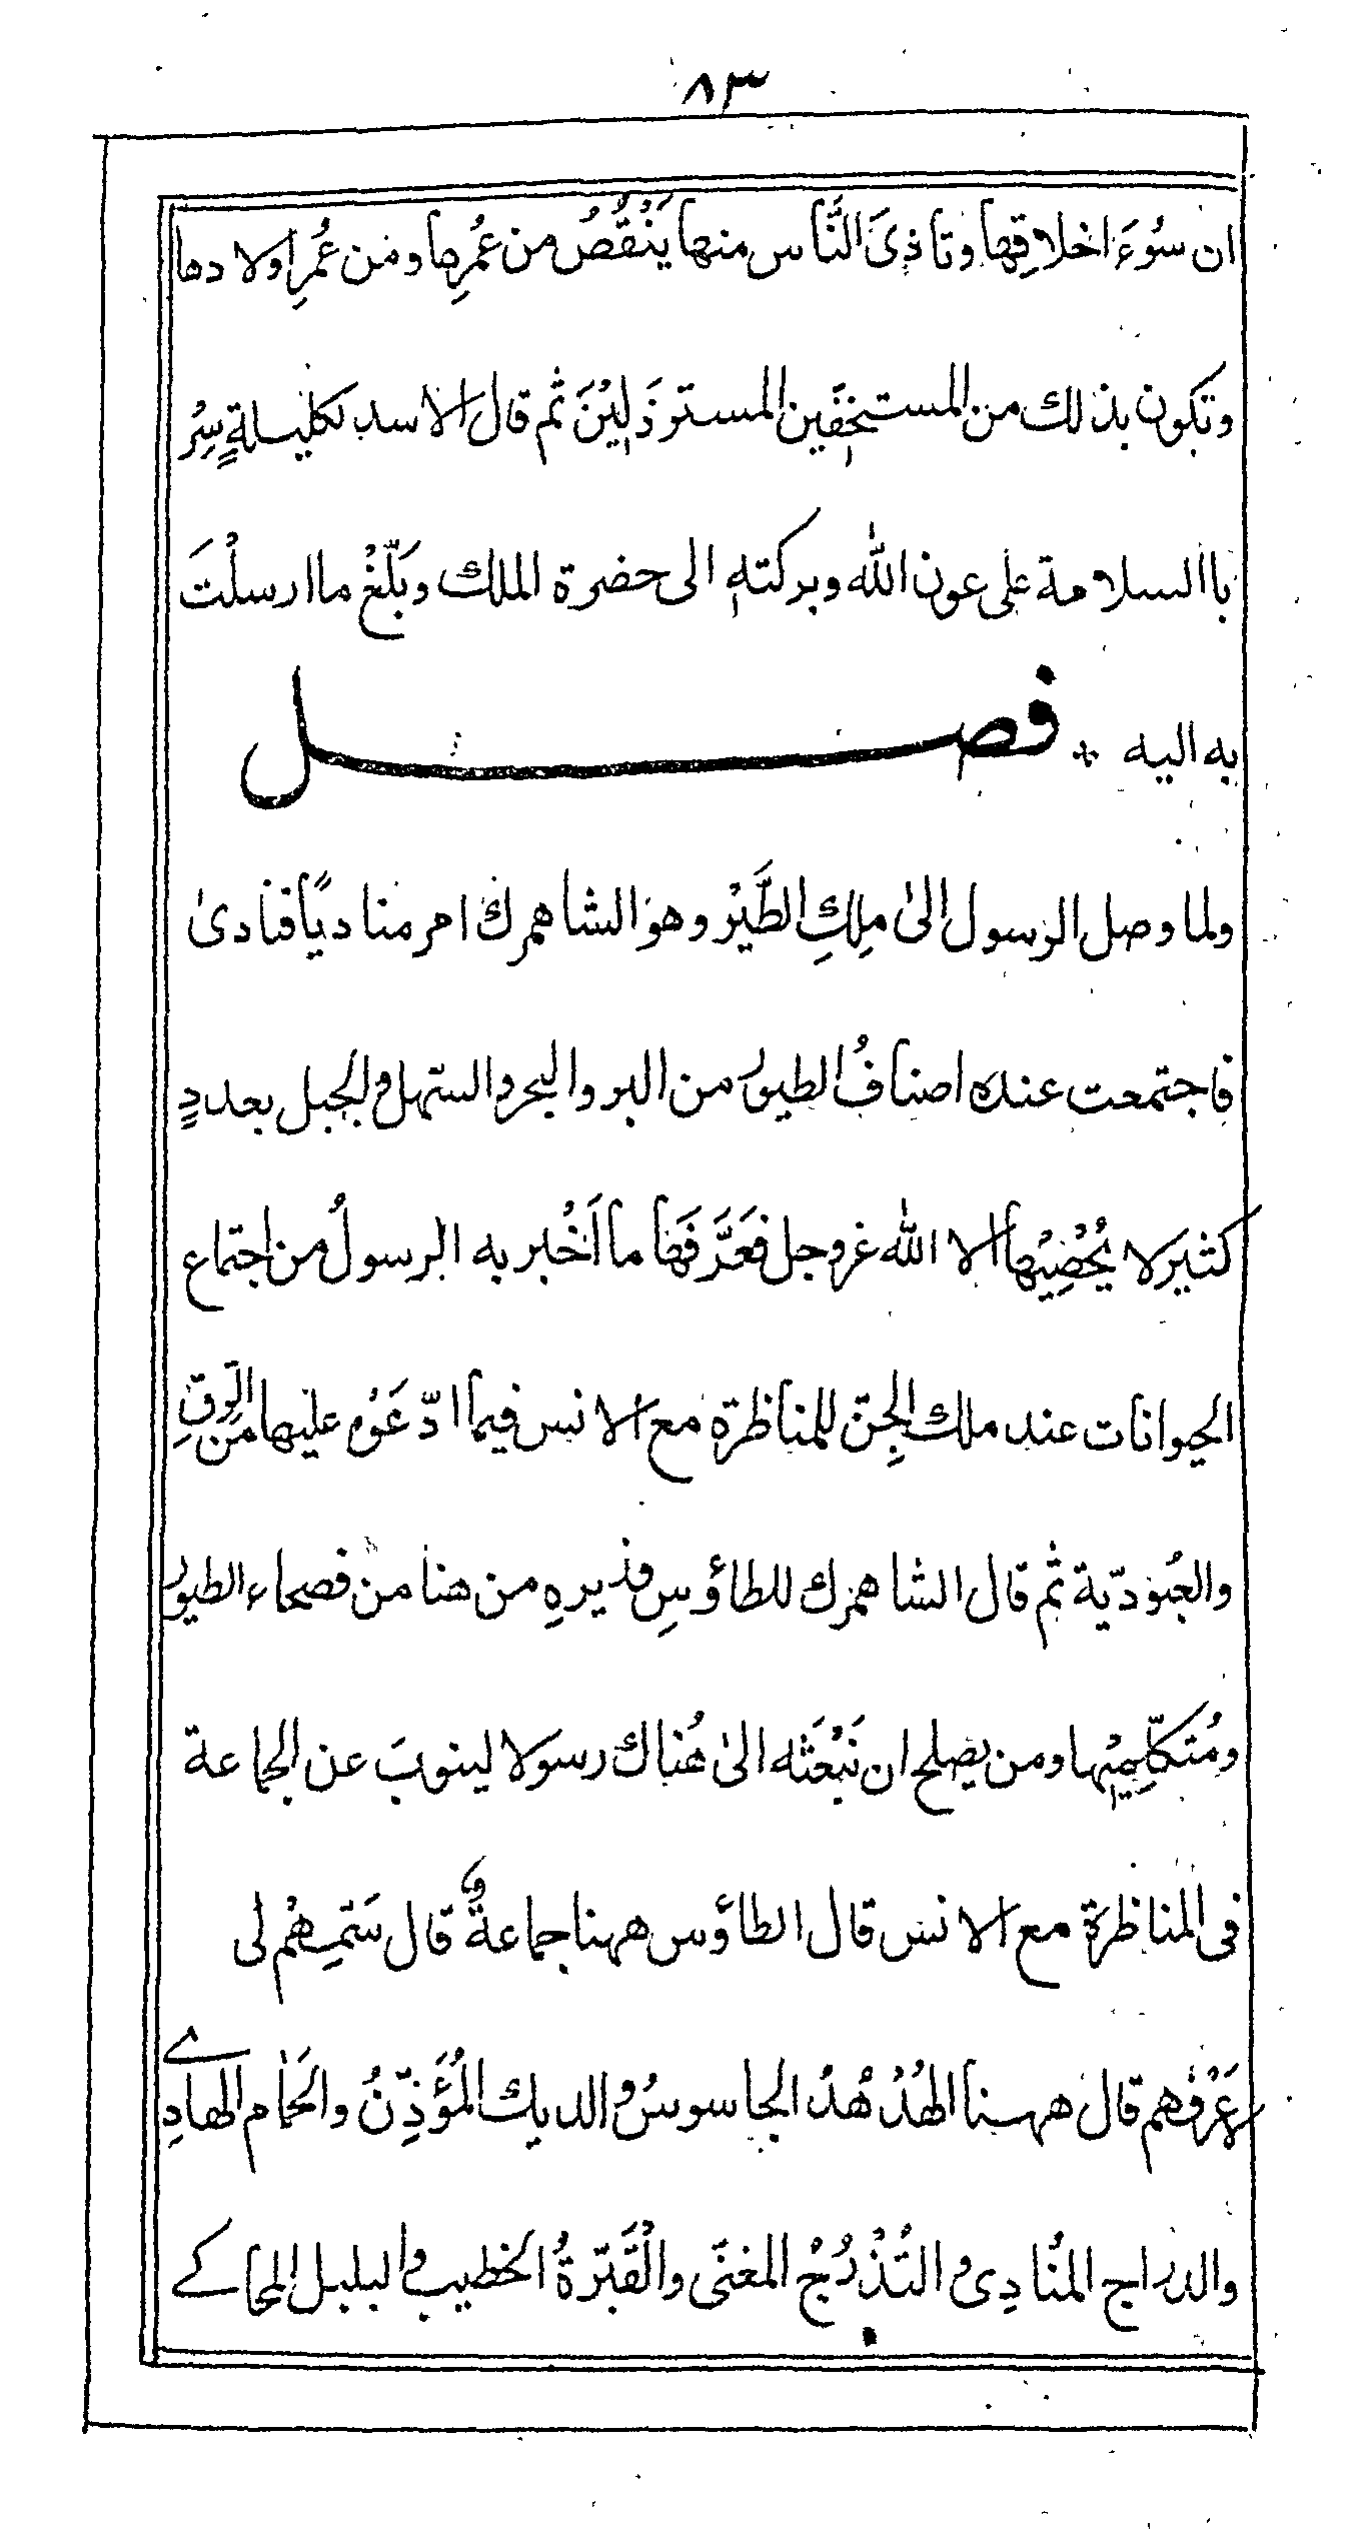 ٨٣
ان سُوءَ اخلاقِها وتاذىَ النَّاس منها يَنْقُصُ من عُمرِها ومن عُمرِ اولادها
وتكون بذلك من المستخفّين المسترذَلِيْنَ ثم قال الاسد لكليلةٍ سِرْ
باالسلامة على عون الله وبركته الى حضرة الملك وبَلِّغْ ما ارسلْتَ
به اليه * فصل
ولما وصل الرسول الىٰ ملِكِ الطَّيْر وهو الشاهمرك امر مناديًا فنادىٰ
فاجتمعت عنده اصنافُ الطيور من البر والبحر والسّهل والجبل بعددٍ
كثير لا يُحْصِيْها الا الله عزوجل فعَرَّفَها ما اَخْبر به الرسولُ من اجتماع
الحيوانات عند ملك الجِنّ للمناظرة مع الانس فيما ادّعَوْه عليها من الرِّقِ
والعُبوديّة ثم قال الشاهمرك للطاؤسِ وزيرهِ من هنا من فصحاء الطيور
ومُتكلّمِيْها ومن يصلح ان نَبْعَثَه الىٰ هُناك رسولا لينوبَ عن الجماعة
فى المناظرة مع الانس قال الطاؤس ههنا جماعةٌ قال سَمِّهِمْ لى
لاعْرفهم قال ههنا الهُدْهُدُ الجاسوسُ والديك المُؤَذِّنُ والحَمام الهادِے
والدراج المُنادِى والتُذْرُجْ المغنّى والْقَبّرةُ الخطيب والبلبل المحاكے